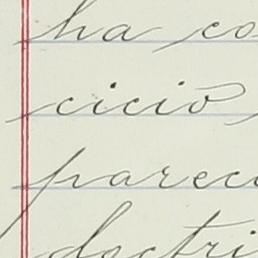 ha co
cició
parec
doctri